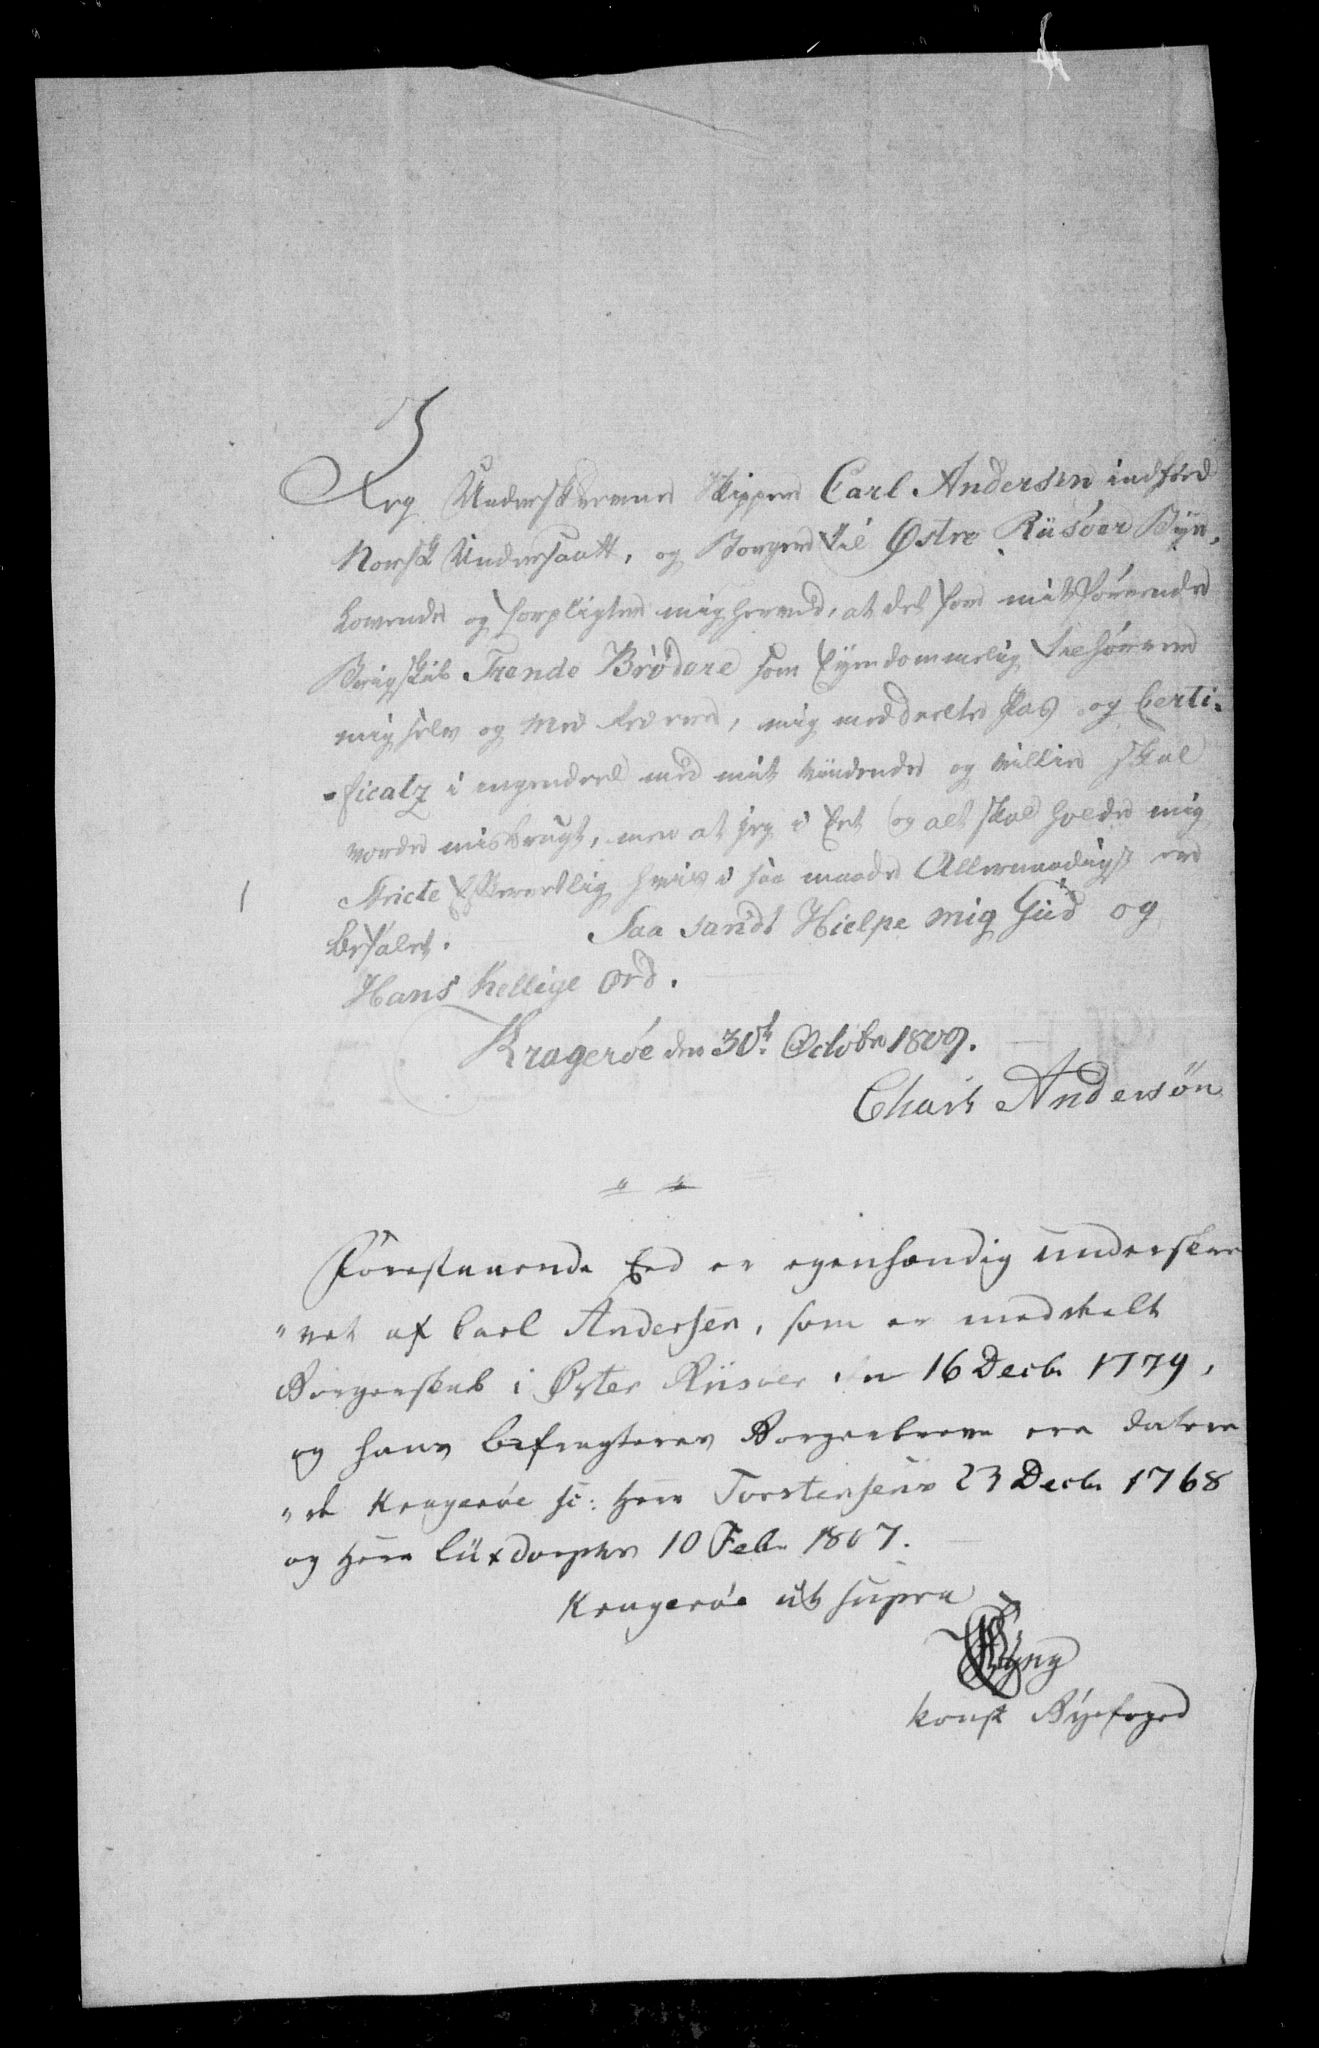 Jeg Underskrevne Skipper Carl Andersen indföd
Norsk Undersaatt, og Borger til Østre Riisöer Bÿn,
Lovende og forpligter mig herved, at det for mit förrende
Brigskib Trende Brödere som Eÿendommelig tilhörrer
mig selv og Med Redere, mig meddeelte Pas og Certi-
-ficatz i ingendeel med mit vidende og villie skal
vorde misbrugt, men at jeg i Eet og alt skal holde mig
Stricte Efterretlig hvis i saa maade Allernaadigst er
befalet. Saa sandt Hielpe mig Gud og
Hans hellige Ord.
Krageröe den 30t Octobr 1809.
Charl Andersøn
Forestaaende Eed er egenhændig underskre
"vet af Carl Andersen, som er meddeelt
Borgerskab i Øster Riisöer den 16 Decbr 1779,
og hans Befragteres Borgerbreve ere datere
"de Krageröe sc: Herr Torstensens 23 Decbr 1768
og Herr Lüxdorphs 10 Febr 1807.
Krageröe ut supra
konst Byefoged